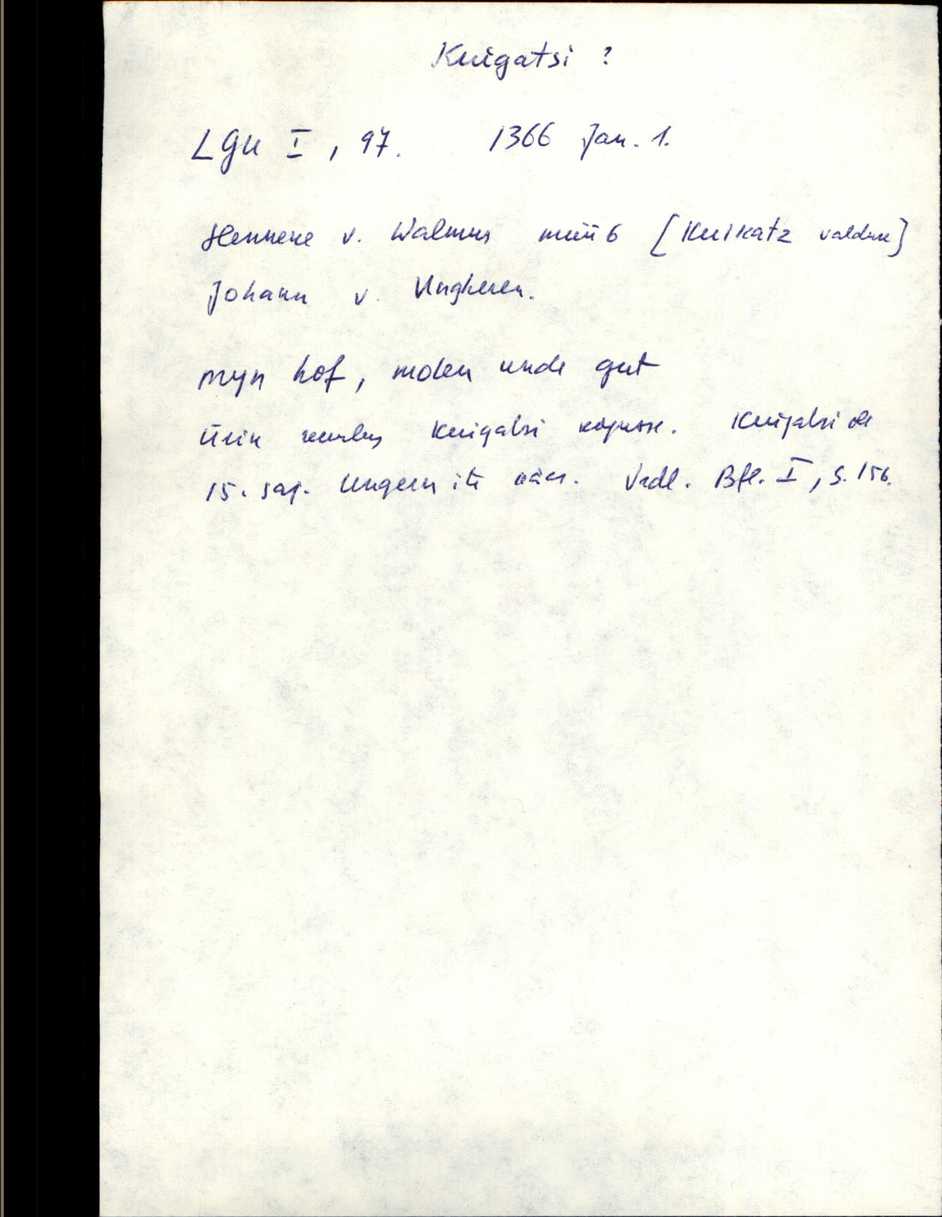 Kuigatsi ?
LGU I, 97. 1366 Jan. 1.
Hennene v. Walmus müüb [Kuikatz valduse]
Johann v. Ungheren.
myn hof, molen unde gut
Üsin Kuigatsi küsimusse. Kuigatsi oli
15. saj. Ungern'ite käes. Vrdl. Bfl. I, S. 156.